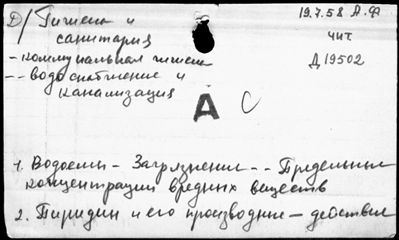 Д/ Гигиена и
санитария
- коммунальная гигиена
-- водоснабжение и
канализация
19.7.58 А.Ф
чит
Д19502
А С
1. Водоемы - Загрязнение -- Предельные
концентрации вредных веществ
2. Пиридин и его производные - действие